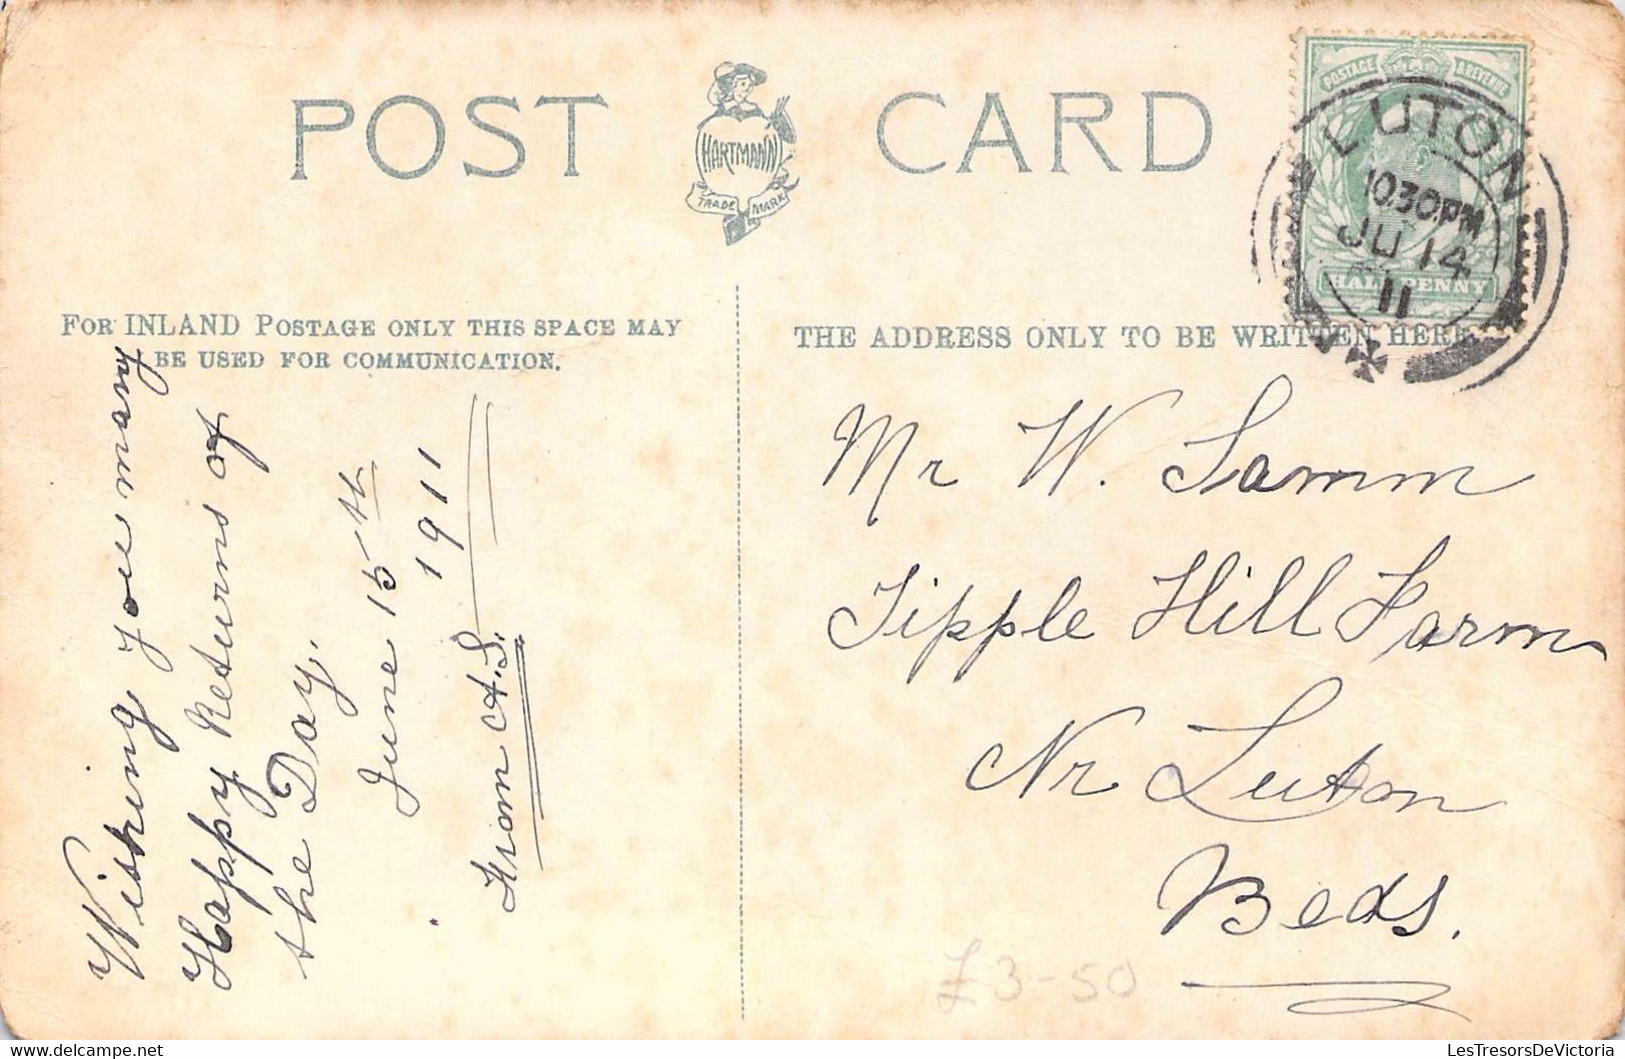 POST CARD
HARTMANN
TRADE MARK
POSTAGE & REVENUE
LUTON
10.30.PM
JU 14
11
HALFPENNY
FOR INLAND POSTAGE ONLY THIS SPACE MAY
BE USED FOR COMMUNICATION.
THE ADDRESS ONLY TO BE WRITTEN HERE
Wishing you many
Happy Returns of
the Day.
June 15th
1911
From A.S.
Mr W. Samm
Tipple Hill Farm
Nr Luton
Beds.
£3-50
LesTresorsDeVictoria